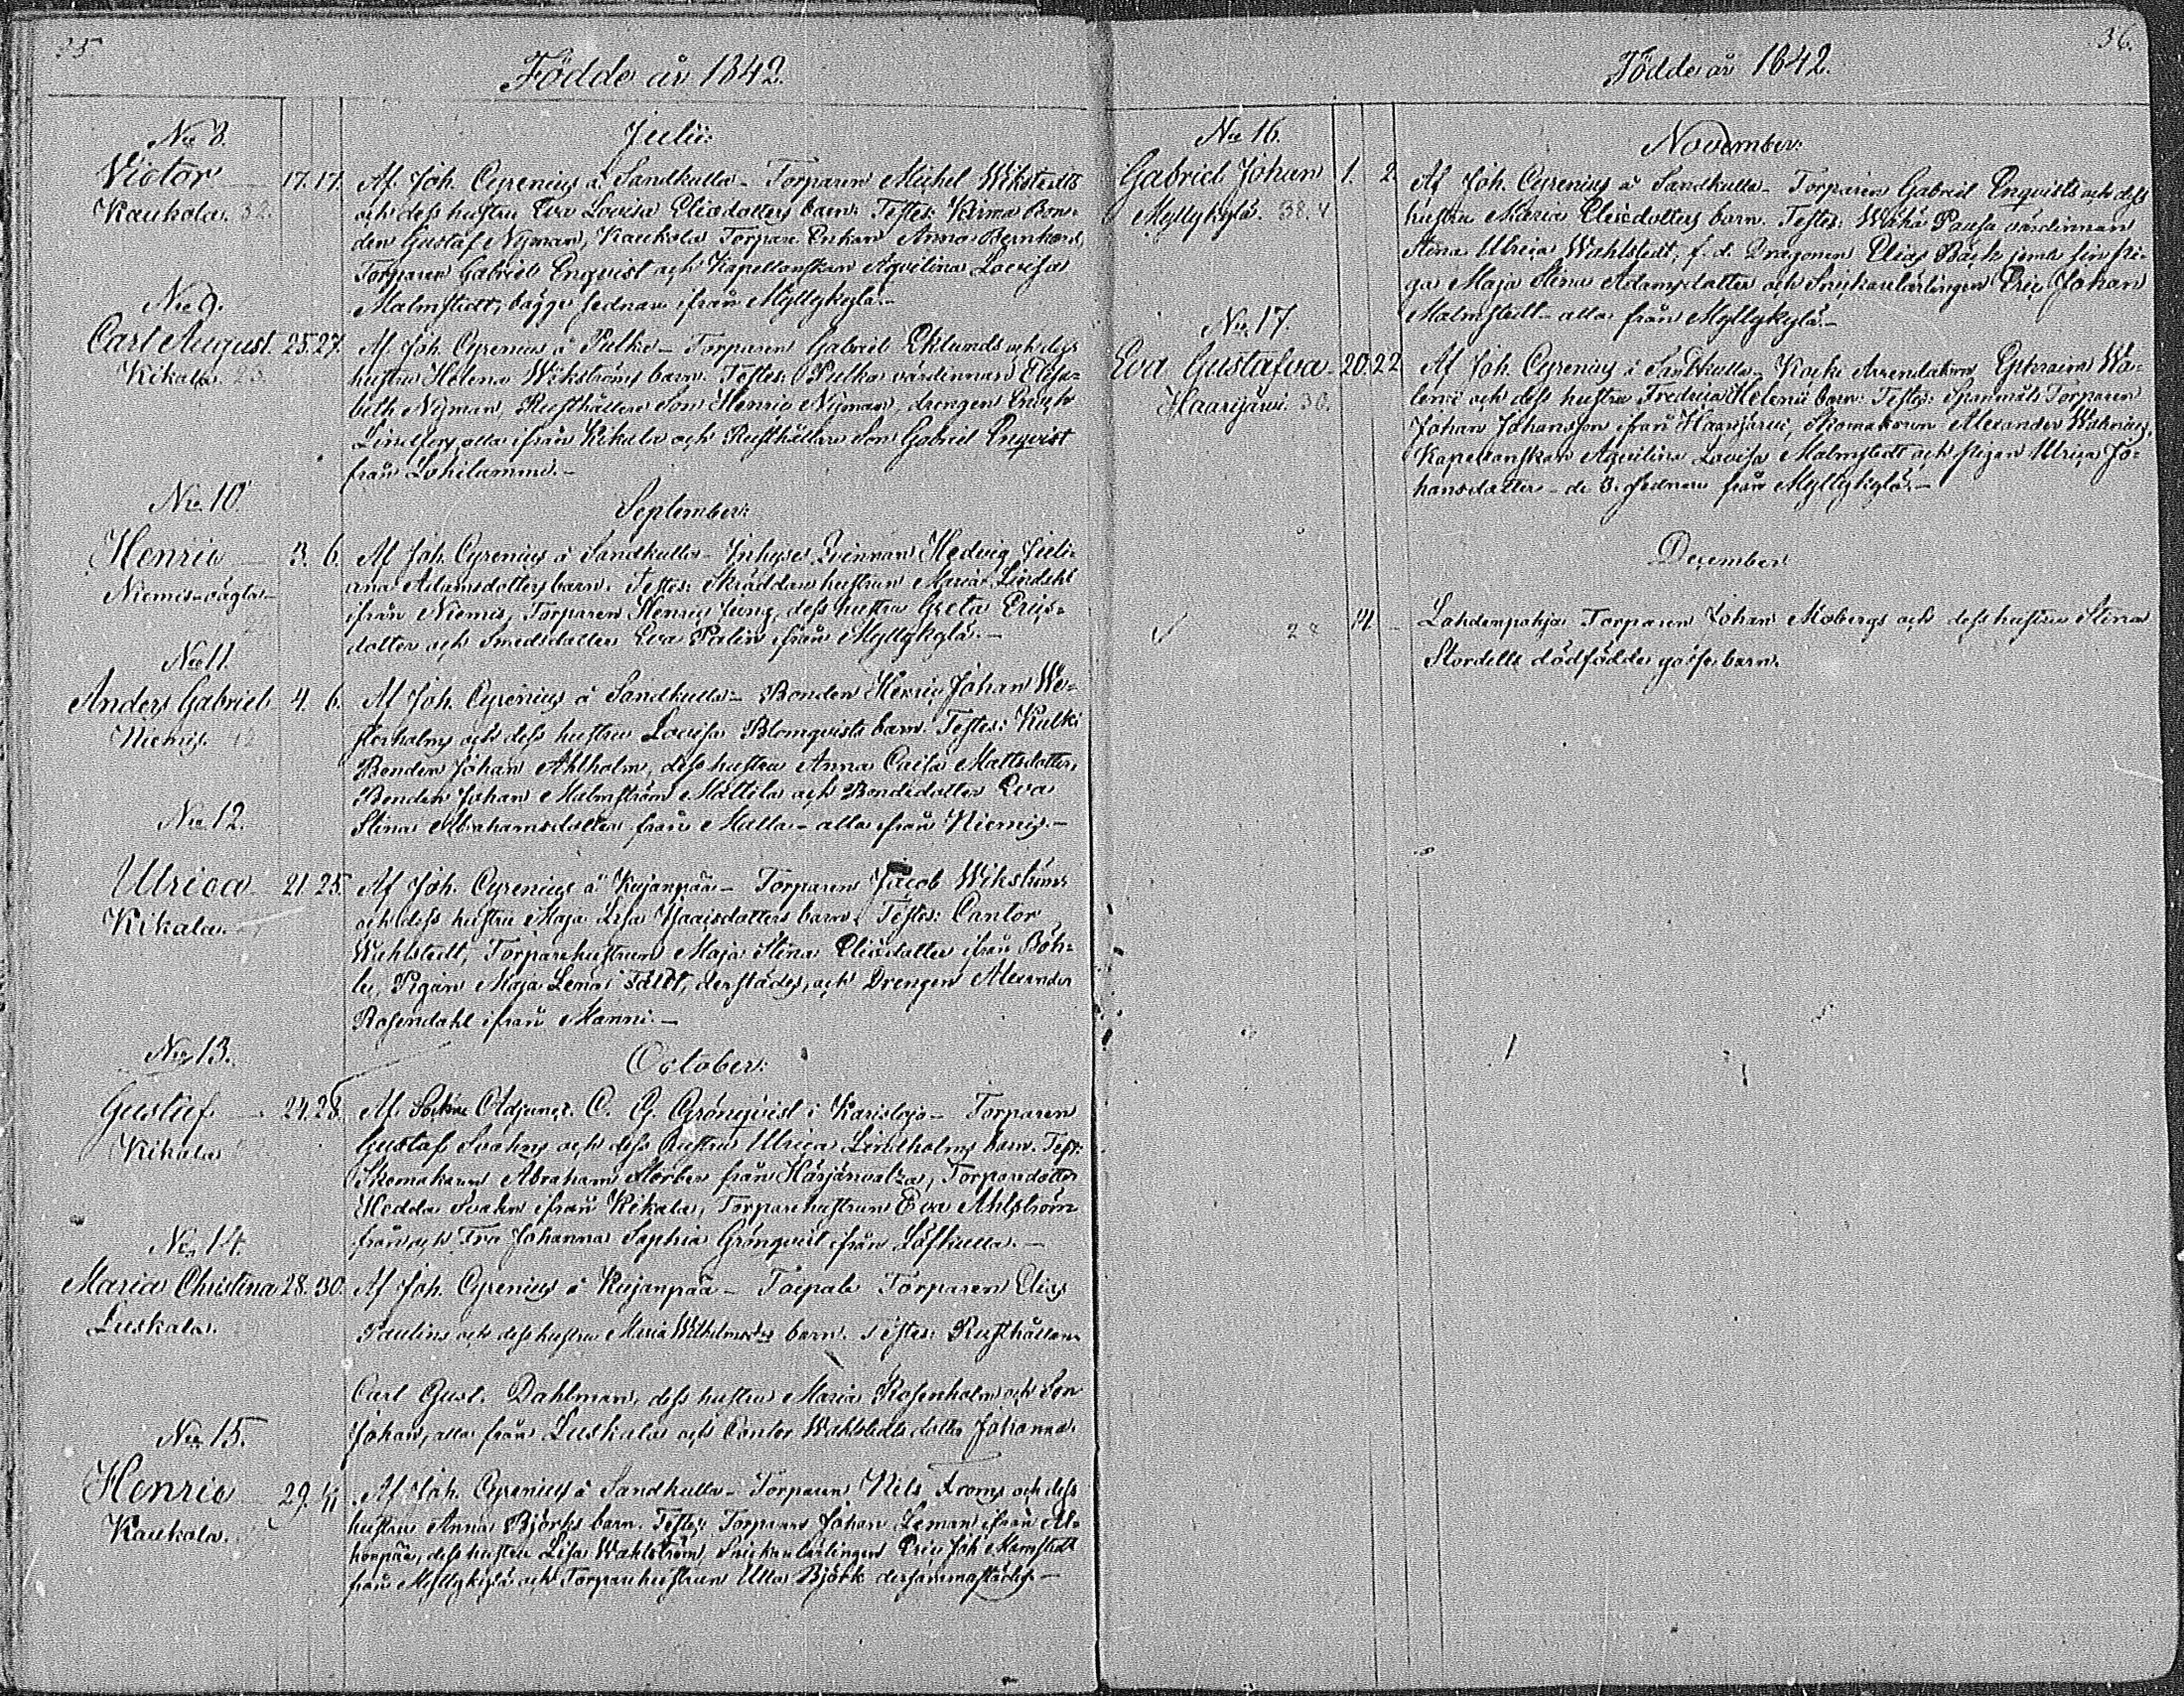 35
Födde år 1842.
No 8.
Julii:
Victor 17. 17. Af Joh. Cyrenius å Sandkulla - Torparen Michel Wikstedts
Kaukola. 32. och dess hustru Eva Lovisa Eliædotters barn. Testes: Kirma Bon-
den Gustaf Nyman, Kaukola Torpare Enkan Anna Bernhard,
Torparen Gabriel Enqvist och Kapellanskan Aqvilina Lovisa
Malmstedt, bägge sednare ifrån Myllykylä.-
No 9.
Carl August. 25. 27. Af Joh. Cyrenius å Pulko - Torparen Gabriel Eklunds och dess
Kikala 23. hustru Helena Wikströms barn. Testes: Pulko värdinnan Elisa-
beth Nyman, Rusthållare Son Henric Nyman, drengen
Lindfors, alla ifrån Kikala och Rusthållare Son Gabriel Enqvist
från Lohilammi.-
No 10.
September:
Henric 3. 6. Af Joh. Cyrenius å Sandkulla - Inhyses Qvinnan Hedvig Juli-
Niemis-vägla ana Adamsdotters barn. Testes: Skräddare hustrun Maria Lindehl
ifrån Niemis, Torparen Henric Ljung, dess hustru Greta Erics-
dotter och Smedsdotter Eva Palin ifrån Myllykylä.-
No 11.
Anders Gabriel 4. 6. Af Joh. Cyrenius å Sandkulla - Bonden Henric Johan We-
Niemis. 12 sterholms och dess hustru Lovisa Blomqvists barn. Testes: Kulki
Bonden Johan Ahlholm, dess hustru Anna Caisa Mattsdotter,
Bonden Johan Malmström Mattila och Bondedotter Eva
Stina Abrahamsdotter från Malla - alla ifrån Niemis.-
No 12.
Ulrica 21. 25. Af Joh. Cyrenius å Kujanpää - Torparen Jacob Wikströms
Kikala. och dess hustru Maja Lisa Isaacsdotters barn. Testes: Cantor
Wahlstedt, Torparehustrun Maja Stina Eliædotter ifrån Böh-
le, Pigan Maja Lena Fält, derstädes, och Drengen Alexander
Rosendahl ifrån Manni.-
No 13.
October:
Gustaf 24. 28. Af Sockne Adjunct. C. G. Grönqvist i Karislojo - Torparen
Kikala Gustaf Svahns och dess Hustru Ulrica Lindholms barn. Test:
Skomakaren Abraham Storber från Härjänvalza, Torparedotter
Hedda Svahn ifrån Kikala, Torparehustrun Eva Ahlström
från och Fru Johanna Sophia Grönqvist ifrån Löfkulla.-
No 14.
Maria Christina 28. 30. Af Joh. Cyrenius å Kujanpää - Toipale Torparen Elias
Luskala. Paulins och dess hustru Maria Wilhelmsd:s barn. Testes: Rusthållaren
Carl Gust. Dahlman, dess hustru Maria Rosenholm och Son
Johan, alla från Luskala och Cantor Wahlstedts dotter Johanna.
No 15.
Henric 29. 1/11 Af Joh. Cyrenius å Sandkulla - Torparen Nils Froms och dess
Kaukola. hustru Anna Björks barn. Testes: Torparen Johan Leman ifrån Al-
honpää, dess hustru Lisa Wahlström, Snickarelärlingen Eric Joh Malmstedt
från Myllykylä och Torparehustrun Ulla Björk dersammastädes.-
36.
Födde år 1842.
No 16.
November:
Gabriel Johan 1. 2. Af Joh. Cyrenius å Sandkulla - Torparen Gabriel Enqvists och dess
Myllykylä. 38. 4 hustru Maria Eliædotters barn. Testes: Wähä Pausa värdinnan
Stina Ulrica Wahlstedt, f. d. Dragonen Elias Bäck jemte sin pi-
ga Maja Stina Adamsdotter och Snickarelärlingen Eric Johan
Malmstedt - alla från Myllykylä.-
No 17.
Eva Gustafva 20. 22 Af Joh. Cyrenius å Sandkulla - Koski Arrendatorn Ephraim Wa-
Haarijärvi. 30. lenii och dess hustru Fredrica Helenii barn: Testes: Spanmåls Torparen
Johan Johansson ifrån Haarijärvi, Skomakaren Alexander Wahrœus,
Kapellanskan Aqvilina Lovisa Malmstedt och pigan Ulrica Jo-
hansdotter - de 3. sednare från Myllykylä.-
December
28 14 - Lahdenpohja Torparen Johan Mobergs och dess hustru Stina
Stordells dödfödde gosse barn.